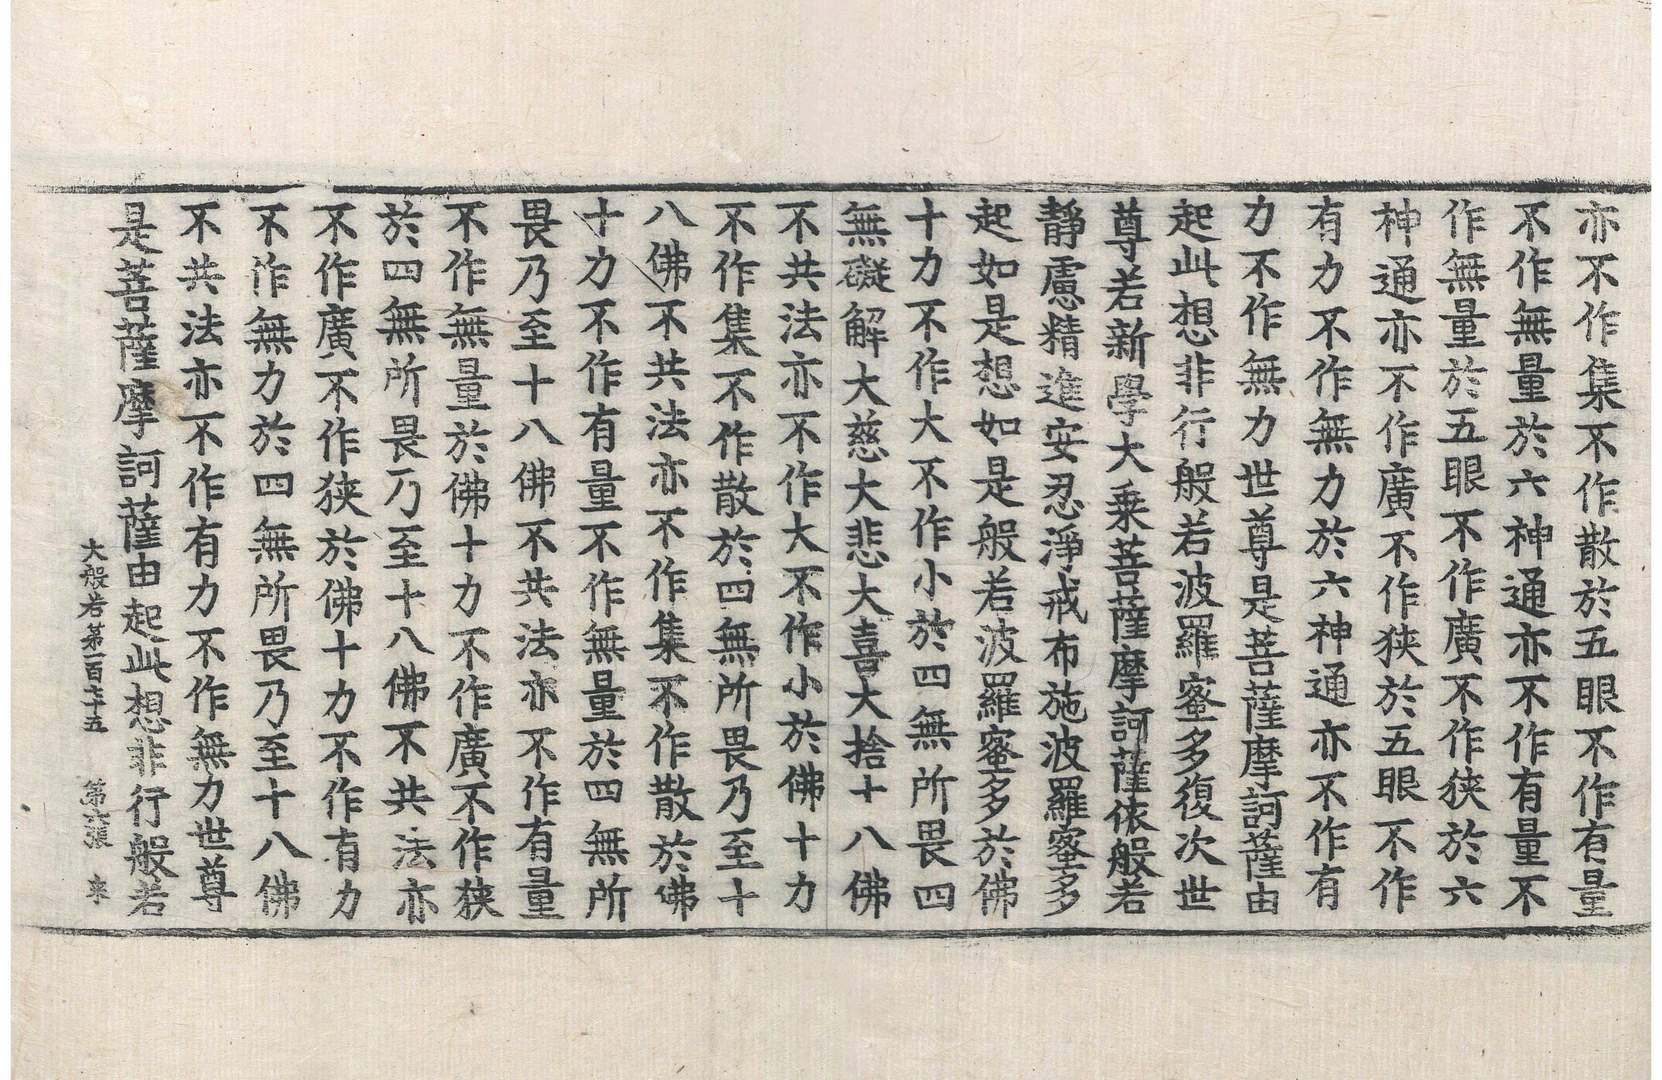 亦不作集不作散於五眼不作有量
不作無量於六神通亦不作有量不
作無量於五眼不作廣不作狹於六
神通亦不作廣不作狹於五眼不作
有力不作無力於六神通亦不作有
力不作無力世尊是菩薩摩訶薩由
起此想非行般若波羅蜜多復次世
尊若新學大乘菩薩摩訶薩依般若
靜慮精進安忍淨戒布施波羅蜜多
起如是想如是般若波羅蜜多於佛
十力不作大不作小於四無所畏四
無礙解大慈大悲大喜大捨十八佛
不共法亦不作大不作小於佛十力
不作集不作散於四無所畏乃至十
八佛不共法亦不作集不作散於佛
十力不作有量不作無量於四無所
畏乃至十八佛不共法亦不作有量
不作無量於佛十力不作廣不作狹
於四無所畏乃至十八佛不共法亦
不作廣不作狹於佛十力不作有力
不作無力於四無所畏乃至十八佛
不共法亦不作有力不作無力世尊
是菩薩摩訶薩由起此想非行般若
大般若第一百七十五 第六張 來